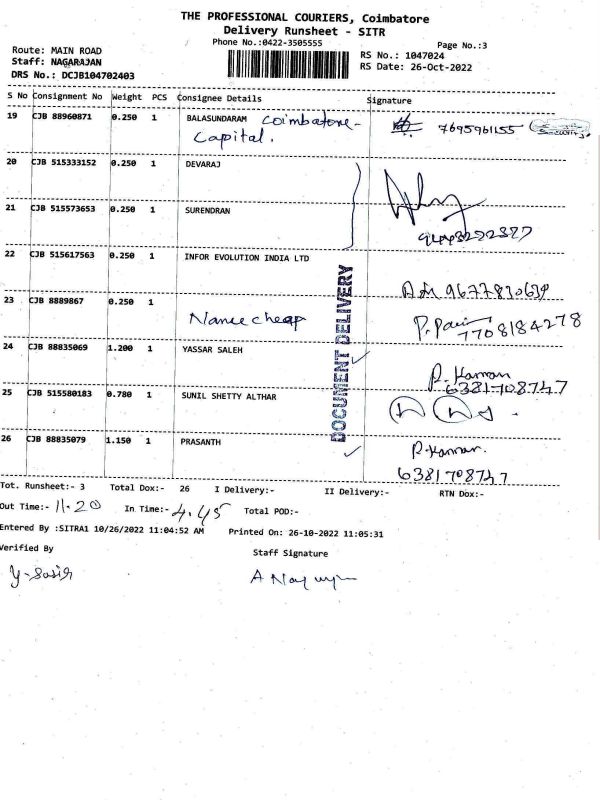 THE PROFESSIONAL COURIERS, Coimbatore
Delivery Runsheet - SITR
Phone No.:0422-3505555
Page No.:3
Route: MAIN ROAD
Staff: NAGARAJAN
DRS No.: DCJB104702403
RS No.: 1047024
RS Date: 26-Oct-2022
S No Consignment No Weight PCS Consignee Details Signature
19 CJB 88960871 0.250 1 BALASUNDARAM Coimbatore- 7695961155
Capital.
20 CJB 515333152 0.250 1 DEVARAJ
21 CJB 515573653 0.250 1 SURENDRAN
22 CJB 515617563 0.250 1 INFOR EVOLUTION INDIA LTD
23 CJB 8889867 0.250 1
7708184278
24 CJB 88835069 1.200 1 YASSAR SALEH
R. Kannan
6381708747
25 CJB 515580183 0.780 1 SUNIL SHETTY ALTHAR
26 CJB 88835079 1.150 1 PRASANTH
R. Kannan.
6381708747
DOCUMENT DELIVERY
Tot. Runsheet:- 3 Total Dox:- 26 I Delivery:- II Delivery:- RTN Dox:-
Out Time:- 11.20 In Time:- 4.45 Total POD:-
Entered By :SITRA1 10/26/2022 11:04:52 AM Printed On: 26-10-2022 11:05:31
Verified By Staff Signature